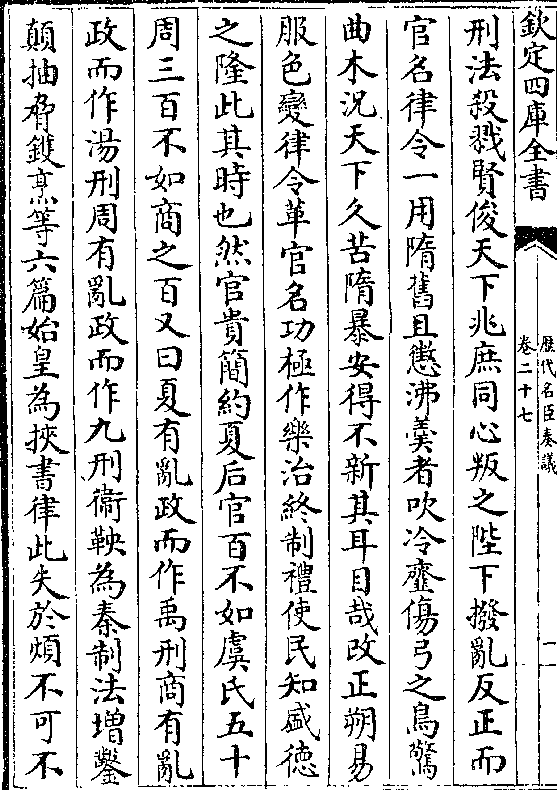 欽定四庫全書
歷代名臣奏議
卷二十七
二
刑法殺戮賢俊天下兆庶同心叛之陛下撥亂反正而
官名律令一用隋舊且懲沸羹者吹冷虀傷弓之鳥驚
曲木況天下久苦隋暴安得不新其耳目哉改正朔易
服色變律令革官名功極作樂治終制禮使民知盛德
之隆此其時也然官貴簡約夏后官百不如虞氏五十
周三百不如商之百又曰夏有亂政而作禹刑商有亂
政而作湯刑周有亂政而作九刑衛鞅為秦制法增鑿
顛抽脅鑊烹等六篇始皇為挾書律此失於煩不可不